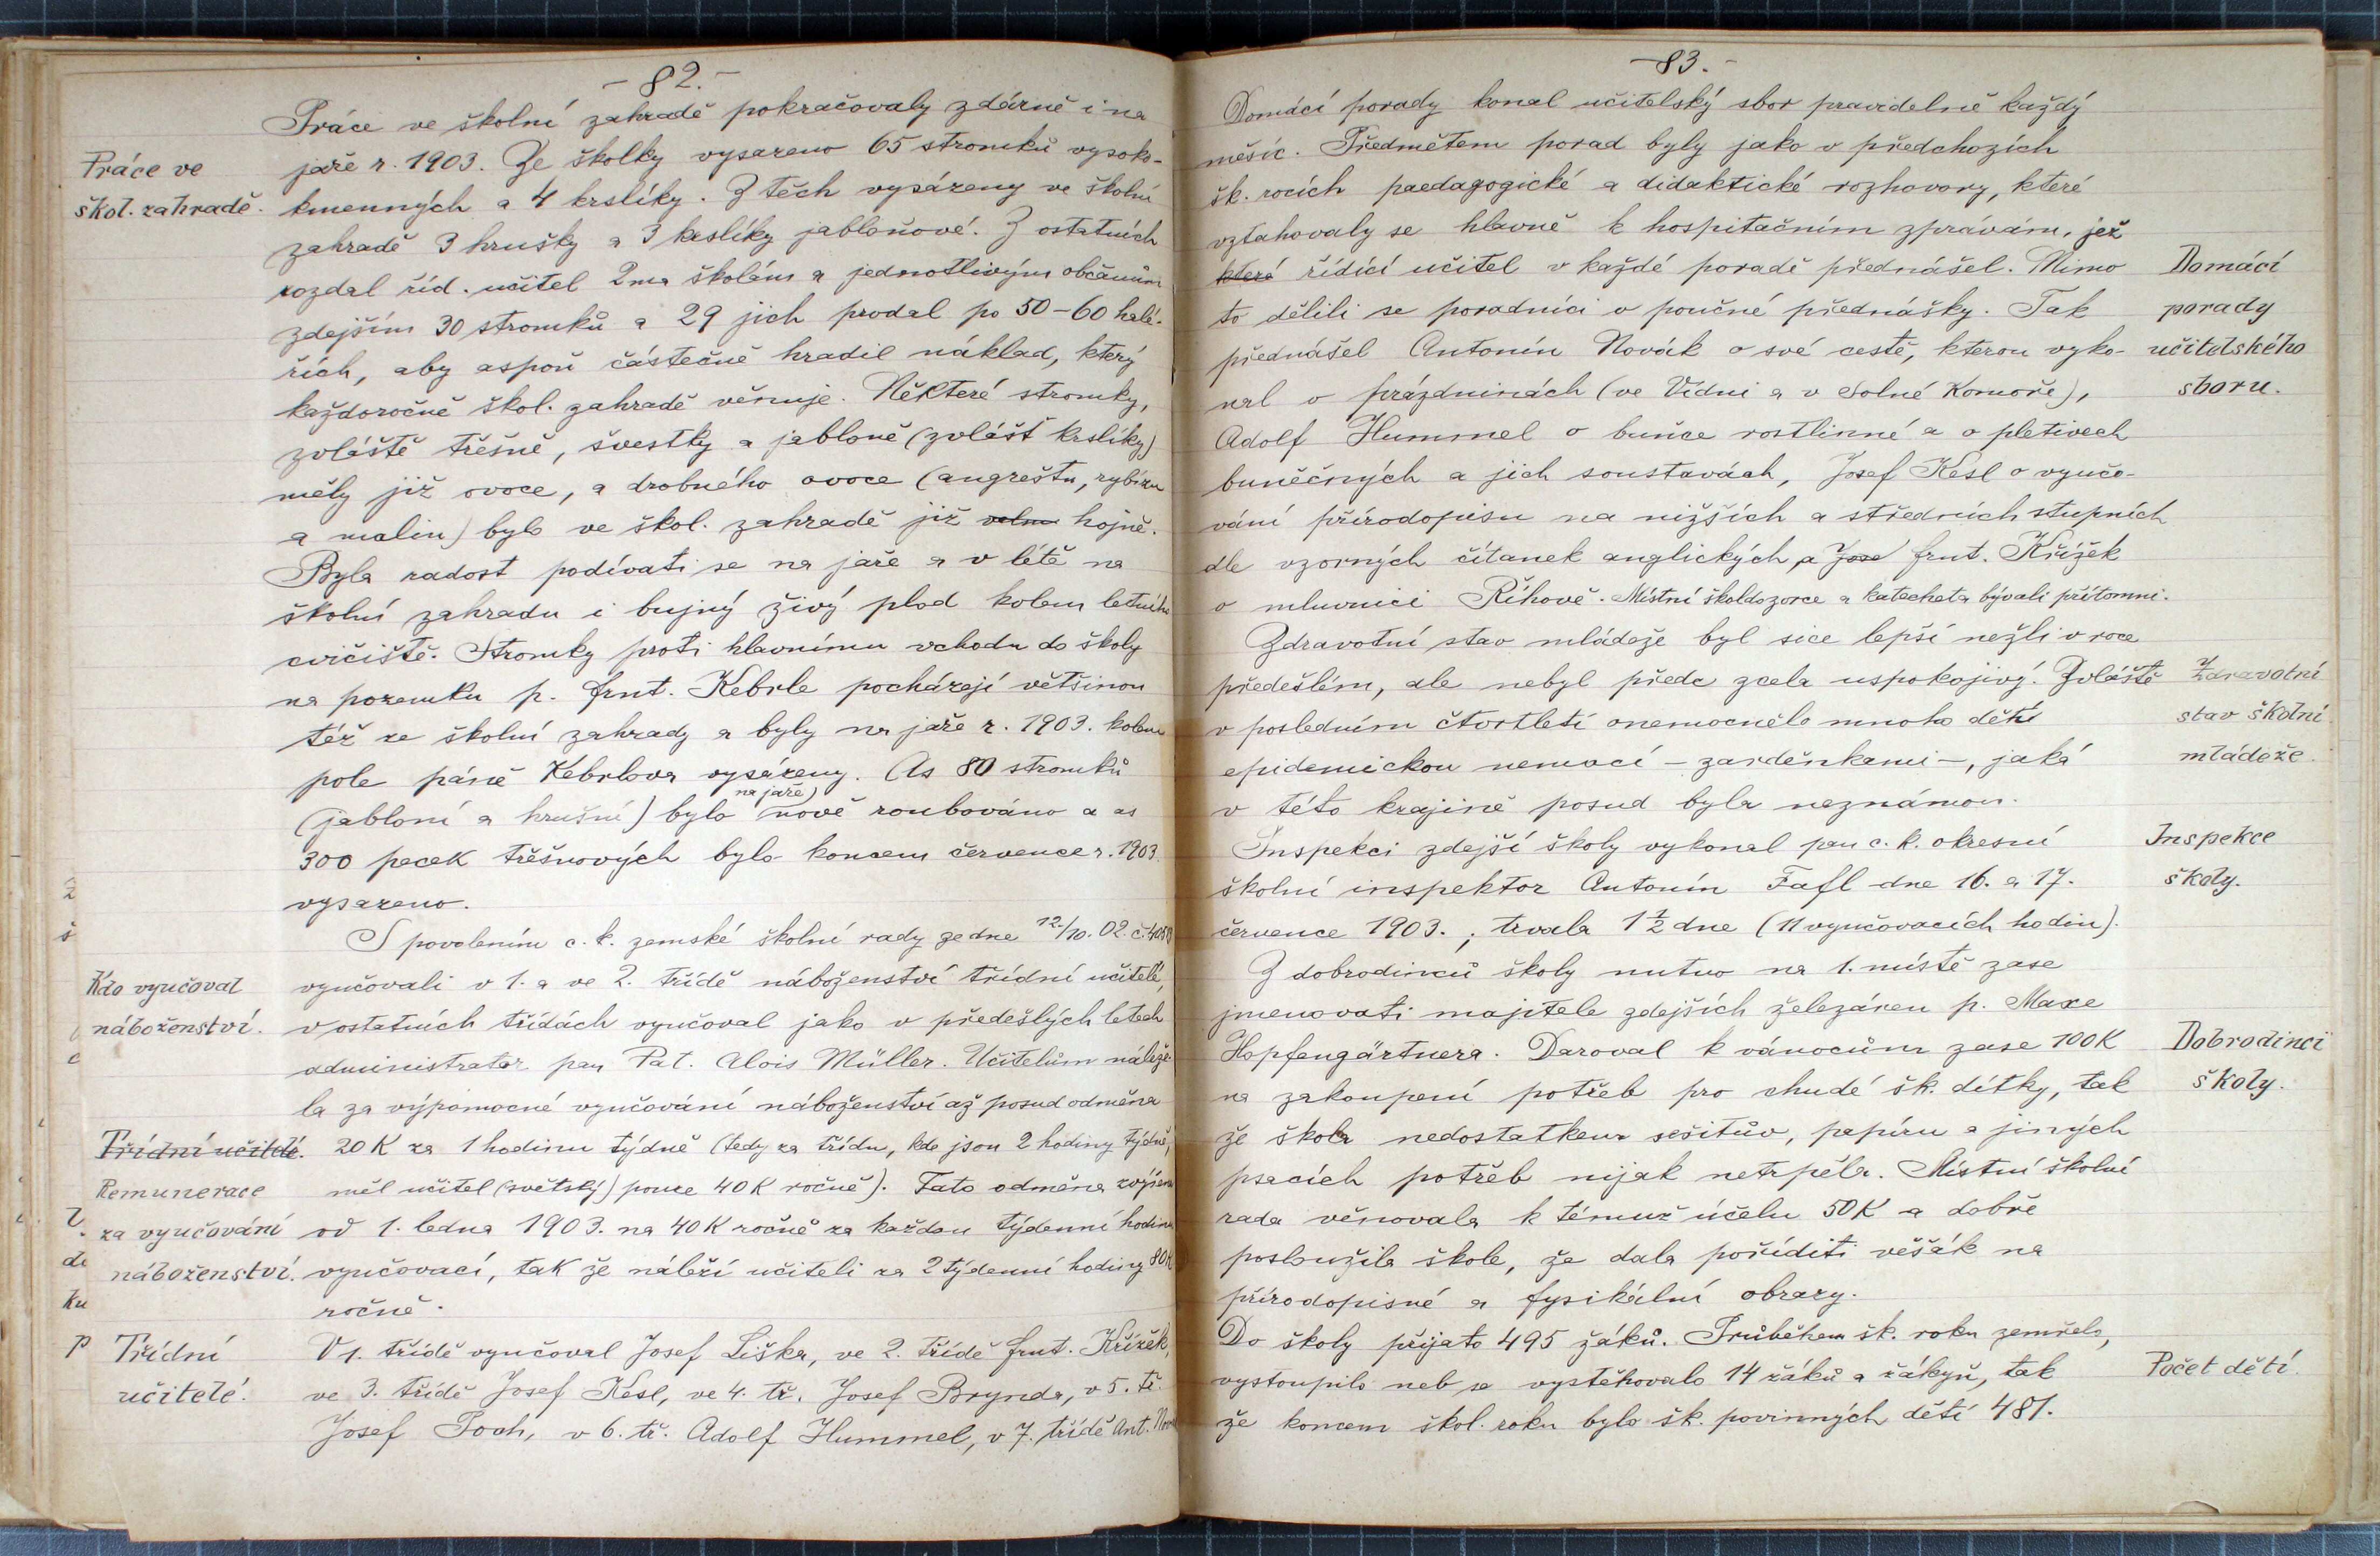 - 82. -
Práce ve školní zahradě pokračovaly zdárně i na
Práce ve
jaře r. 1903. Ze školky vysazeno 65 stromků vysoko-
škol. zahradě.
kmenných a 4 krslíky. Z těch vysázeny ve školní
zahradě 3 hrušky a 3 krslíky jabloňové. Z ostatních
rozdal říd. učitel 2ma školám a jednotlivým občanům
zdejším 30 stromků a 29 jich prodal po 50-60 halé-
řích, aby aspoň částečně hradil náklad, který
každoročně škol. zahradě věnuje. Některé stromky,
zvláště třešně, švestky a jabloně (zvlášť krslíky)
měly již ovoce, a drobného ovoce (angreštu, rybízu
a malin) bylo ve škol. zahradě již hojně.
Byla radost podívati se na jaře a v létě na
školní zahradu i bujný živý plod kolem letního
cvičiště. Stromky proti hlavnímu vchodu do školy
na pozemku p. Frnt. Kebrle pocházejí většinou
též ze školní zahrady a byly na jaře r. 1903. kolem
pole páně Kebrlova vysázeny. As 80 stromků
na jaře
(jabloní a hrušní) bylo nově roubováno a as
300 pecek třešňových bylo koncem července r. 1903.
vysazeno.
S povolením c. k. zemské školní rady ze dne 12./10. 02. č.
Kdo vyučoval
vyučovali v 1. a ve 2. třídě náboženství třídní učitelé,
náboženství.
v ostatních třídách vyučoval jako v předešlých letech
administrator pan Pat. Alois Müller. Učitelům nálеže-
la za výpomocné vyučování náboženství až posud odměna
Třídní učitelé.
20 K za 1 hodinu týdně (tedy za třídu, kde jsou 2 hodiny týdně,
Remunerace
měl učitel (světský) pouze 40 K ročně). Tato odměna
za vyučování
od 1. ledna 1903. na 40 K ročně za každou týdenní hodinu
náboženství.
vyučovací, tak že náleží učiteli za 2 týdenní hodiny 80 K
ročně.
Třídní
V 1. třídě vyučoval Josef Liška, ve 2. třídě Frnt. Křížek,
učitelé.
ve 3. třídě Josef Kesl, ve 4. tř. Josef Brynda, v 5. tř.
Josef Poch, v 6. tř. Adolf Hummel, v 7. třídě Ant.
- 83. -
Domácí porady konal učitelský sbor pravidelně každý
měsíc. Předmětem porad byly jako v předchozích
šk. rocích paedagogické a didaktické rozhovory, které
vztahovaly se hlavně k hospitačním zprávám, jež
které řídící učitel v každé poradě přednášel. Mimo
Domácí
to dělili se poradníci o poučné přednášky. Tak
porady
přednášel Antonín Novák o své cestě, kterou vyko-
učitelského
nal o prázdninách (ve Vídni a v Solné Komoře),
sboru.
Adolf Hummel o buňce rostlinné a o pletivech
buněčných a jich soustavách, Josef Kesl o vyučo-
vání přírodopisu na nižších a středních stupních
dle vzorných čítanek anglických, a Jose Frnt. Křížek
o mluvnici Říhově. Místní školdozorce a katecheta bývali přítomni.
Zdravotní stav mládeže byl sice lepší nežli v roce
předešlém, ale nebyl přede zcela uspokojivý. Zvláště
Zdravotní
v posledním čtvrtletí onemocnělo mnoho dětí
stav školní
epidemickou nemocí - zarděnkami -, jaká
mládeže.
v této krajině posud byla neznámou.
Inspekci zdejší školy vykonal pan c. k. okresní
Inspekce
školní inspektor Antonín Fafl dne 16. a 17.
školy.
července 1903. ; trvala 1 1/2 dne (11 vyučovacích hodin).
Z dobrodinců školy nutno na 1. místě zase
jmenovati majitele zdejších železáren p. Maxe
Hopfengärtnera. Daroval k vánocům zase 100 K
Dobrodinci
na zakoupení potřeb pro chudé šk. dítky, tak
školy.
že škola nedostatkem sešitův, papíru a jiných
psacích potřeb nijak netrpěla. Místní školní
rada věnovala k témuž účelu 50 K a dobře
posloužila škole, že dala poříditi věšák na
přírodopisné a fysikální obrazy.
Do školy přijato 495 žáků. Průběhem šk. roku zemřelo,
vystoupilo neb se vystěhovalo 14 žáků a žákyň, tak
Počet dětí.
že koncem škol. roku bylo šk. povinných dětí 481.